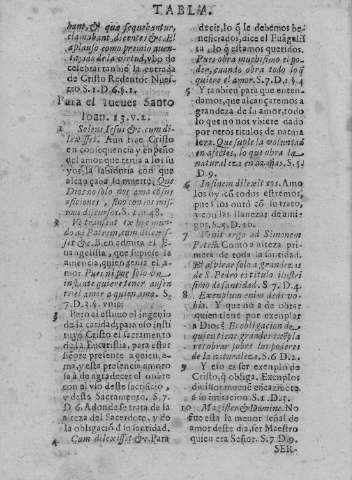 TABLA.
bant, & qua sequebantur,
clamabant dicentes &c. El
aplauso como premio aven-
tajado de la virtud, vbo de
celebrar tambiẽ la entrada
de Cristo Redentor Nues-
tro S.1.D.6.§.1.
Para el Iueves Santo
Ioan. 13.v.1.
Sciens Iesus &c. cum di-
lexisset. Aun trae Cristo
en consequencia y en peño
del amor que tenia a los su
yos la sabiduria con que
alcançaba la muerte. Que
Dios no solo nos ama essas
aficiones, sino con los mis-
mos discursos. S.1.n.48.
Vt transeat ex hoc mun-
do ad Patrem, cum dilexis-
set &c. Bien admira el E-
uangelista, que supiesse la
ausencia, quien tenia el a-
mor. Pues ni por solo vn
instante quiere tener ausen-
te el amor a quien ama. S.
7.D.3.§.
3 Pero assi estuuo el ingenio
de la caridad, para ello insti
tuyó Cristo el Sacramento
de la Eucaristia, para estar
siẽpre presente a quien a-
ma, y esta presencia amoro
sa à de agradecer el onbre
con al vso deste sacrificio,
y desta Sacramento. S.7.
D.6. Adonde se trata de la
alteza del Sacerdote, y do
la obligació d̃ su santidad.
4 Cum dilexisset &c. Para
decir, lo q̃ le debemos be-
neficiados, dice el Euãgelis
ta, lo q̃ estamos queridos.
Pues obra muchissimo el po-
der, cuando obra todo lo q̃
quiere el amor. S.7.D.1.§.4
5 Y tambien para que enten-
damos, que alcançaremos a
grandeza de su amor, todo
lo que no nos vbiere dado
por otros titulos de natura
leza. Que suple la voluntad
en afectos, lo que obra la
naturaleza en azañas. S.5.
D.9.
6 In finem dilexit eos. Amo
los yà cõ todos estremos,
pues los onró cõ su trato,
y con las llanezas de ami-
gos. S.5.D.10.
7 Venit ergo ad Simonem
Petrũ. Como a alteza prime-
ra de toda la santidad.
El acabar solo a grandezas
de S. Pedro es titulo ilustris
simo de santidad. S.7.D.4.
8 Exemplum enim dedi vo-
bis. Y que no a de obrar
quien tiene por exemplar
a Dios? Es obligacion de
quien tiene grandes exẽplos
el obrar sobre los poderes
de la naturaleza. S.6.D.2.
9 Y esto es ser exenplo de
Cristo, q̃ obliga. Exenplos
de
a imitacion. S.1.D.5.
10 Magister & Domine. No
fue esta la menor señal de
amor deste dia, ser Maestro
quien era Señor. S.7.D.9.
SER-